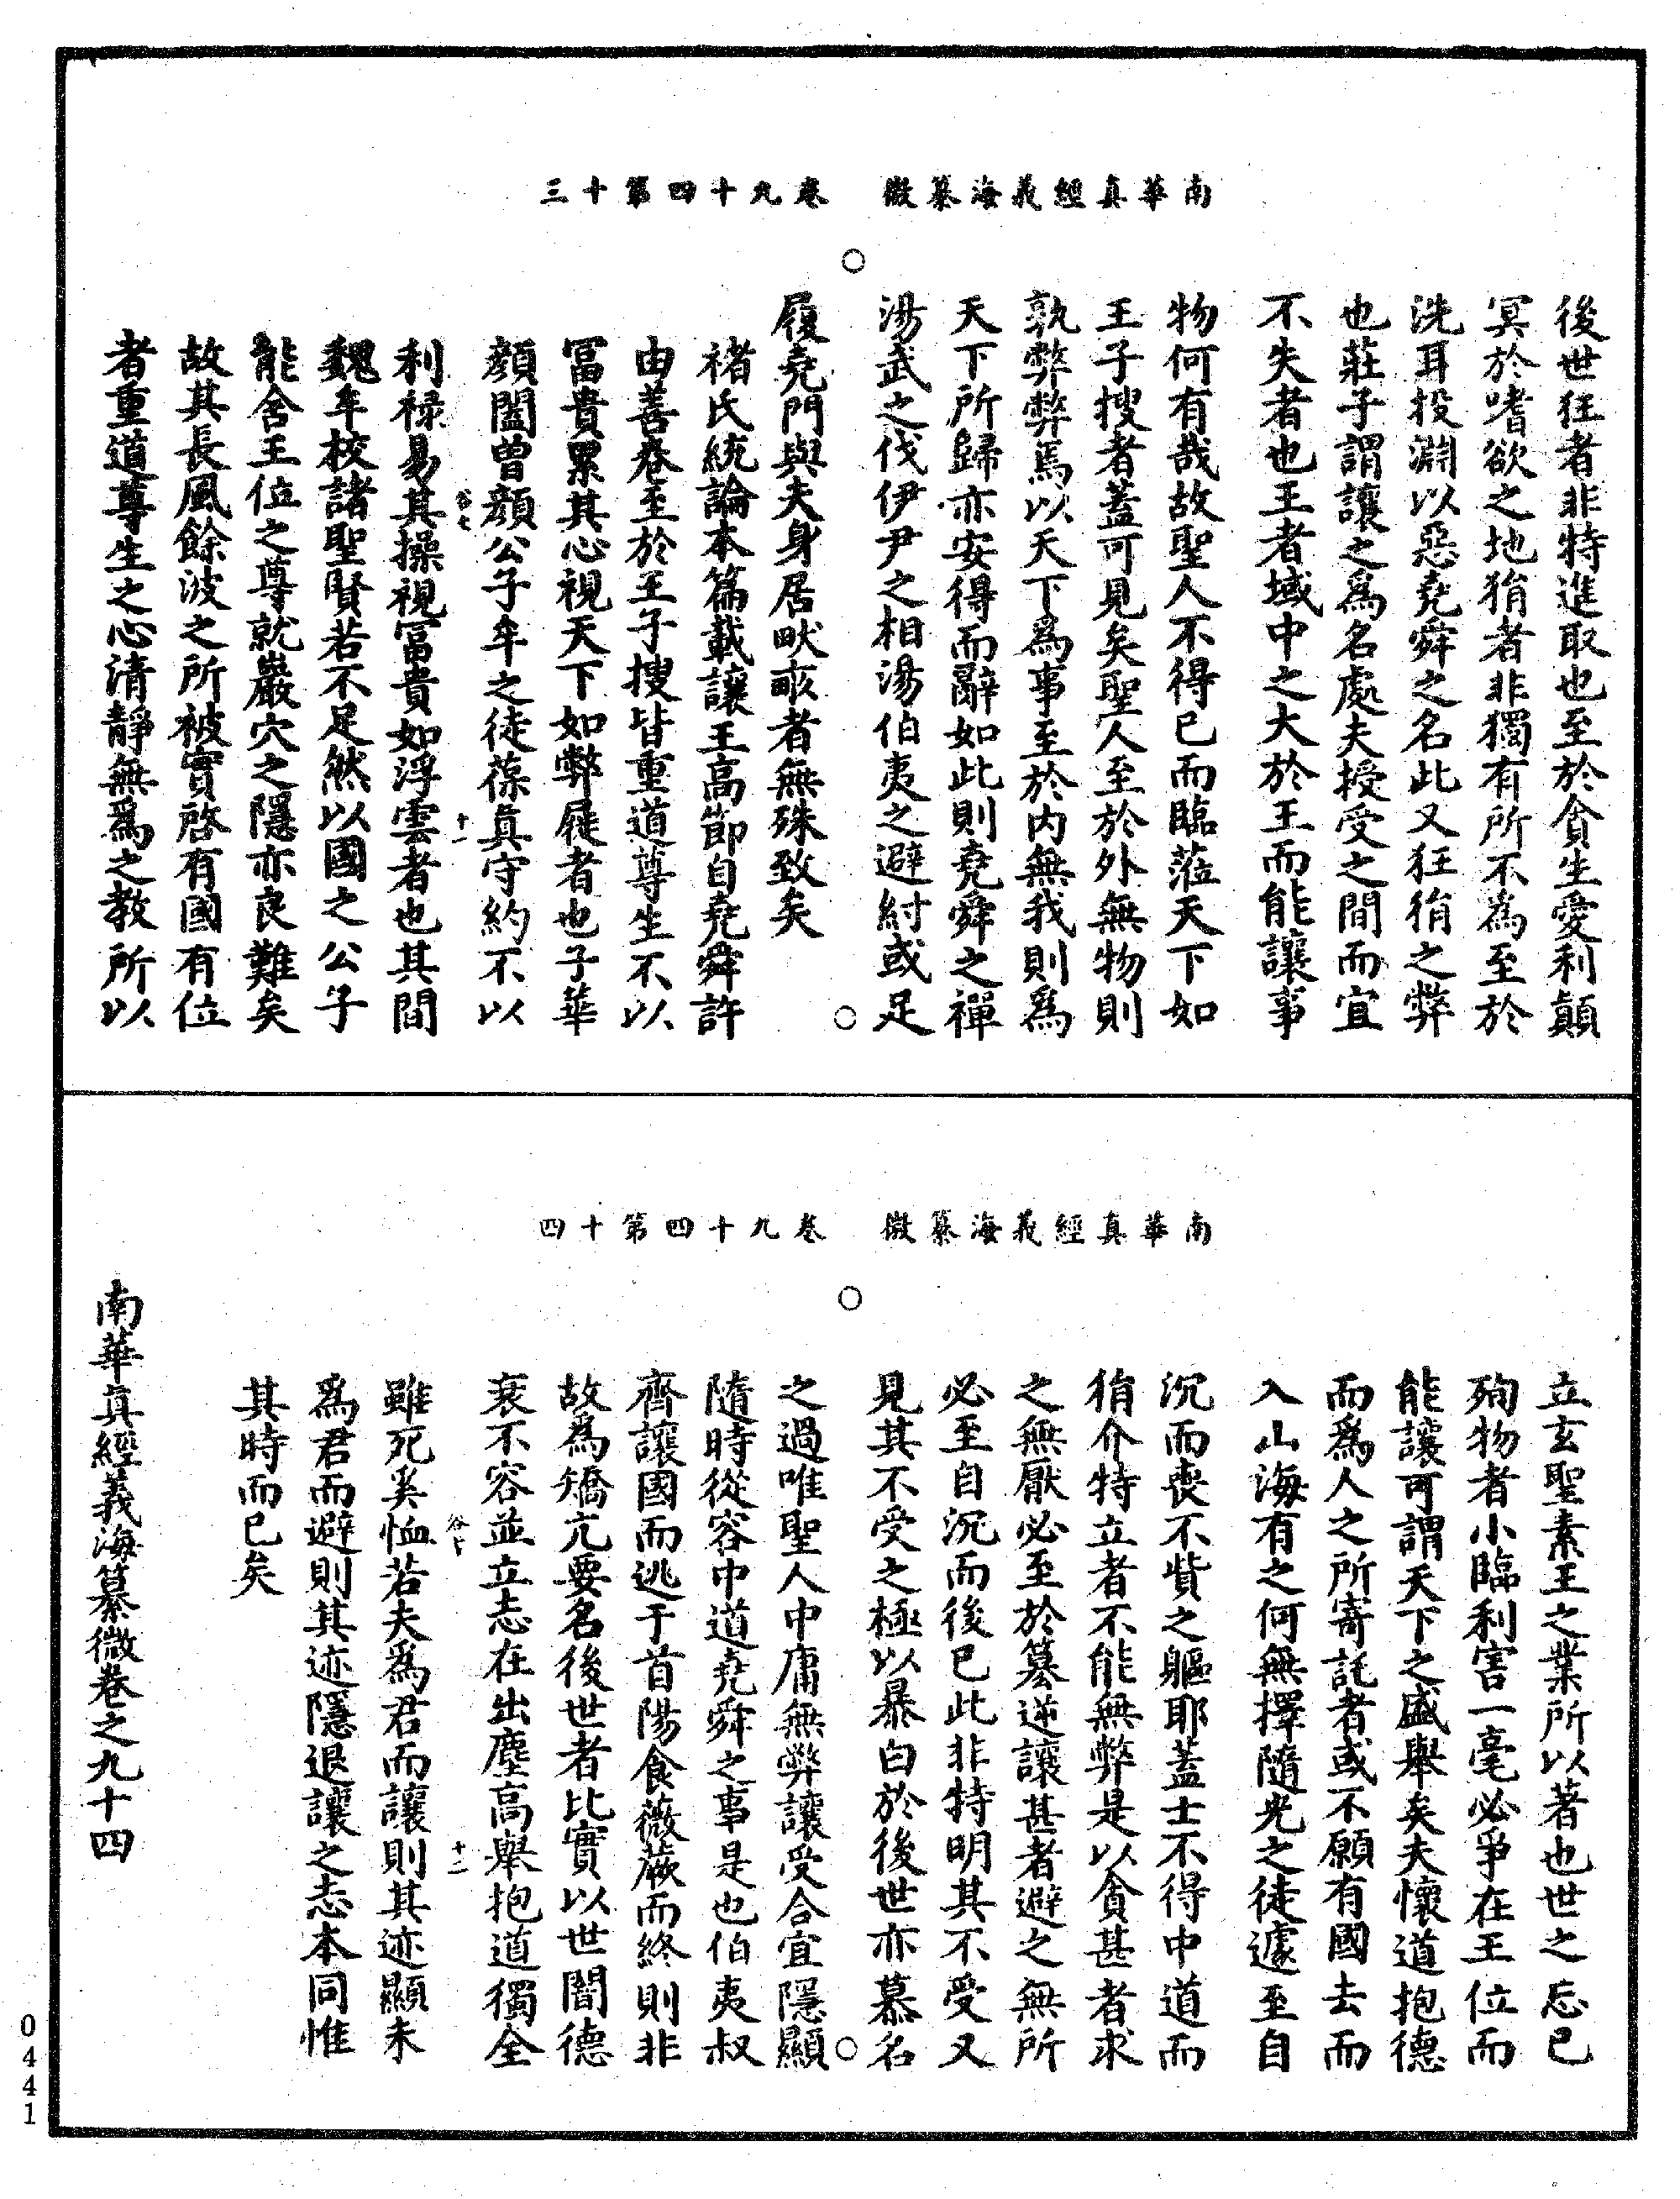 南華真經義海纂微　卷九十四第十三
後世狂者非特進取也至於貪生愛利顛
冥於嗜欲之地狷者非獨有所不為至於
洗耳投淵以惡堯舜之名此又狂狷之弊
也莊子謂讓之為名處夫授受之間而宜
不失者也王者域中之大於王而能讓事
物何有哉故聖人不得已而臨蒞天下如
王子搜者蓋可見矣聖人至於外無物則
孰弊弊焉以天下為事至於內無我則為
天下所歸亦安得而辭如此則堯舜之禪
湯武之伐伊尹之相湯伯夷之避紂或足
履堯門與夫身居畎畝者無殊致矣
褚氏統論本篇載讓王高節自堯舜許
由善卷至於王子搜皆重道尊生不以
富貴累其心視天下如弊屣者也子華
顏闔曾顏公子牟之徒葆真守約不以
利祿易其操視富貴如浮雲者也其間
魏牟校諸聖賢若不足然以國之公子
能舍王位之尊就巖穴之隱亦良難矣
故其長風餘波之所被實啓有國有位
者重道尊生之心清靜無為之教所以
谷七　十一
南華真經義海纂微　卷九十四第十四
立玄聖素王之業所以著也世之忘已
殉物者小臨利害一毫必爭在王位而
能讓可謂天下之盛舉矣夫懷道抱德
而為人之所寄託者或不願有國去而
入山海有之何無擇隨光之徒遽至自
沉而喪不貲之軀耶蓋士不得中道而
狷介特立者不能無弊是以貪甚者求
之無厭必至於篡逆讓甚者避之無所
必至自沉而後已此非特明其不受又
見其不受之極以暴白於後世亦慕名
之過唯聖人中庸無弊讓受合宜隱顯
隨時從容中道堯舜之事是也伯夷叔
齊讓國而逃于首陽食薇蕨而終則非
故為矯亢要名後世者比實以世闇德
衰不容並立志在出塵高舉抱道獨全
雖死奚恤若夫為君而讓則其迹顯未
為君而避則其迹隱退讓之志本同惟
其時而已矣
谷七　十二
南華真經義海纂微卷之九十四
0441